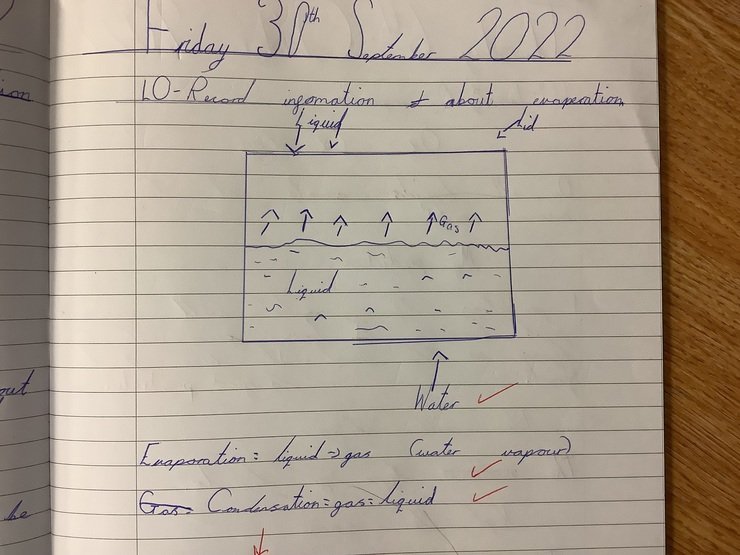 Friday 30th September 2022
LO-Record infomation about evaporation
Liquid
Lid
Gas
Liquid
Water
Evaporation = liquid → gas (water vapour)
Gas Condensation = gas = liquid
be